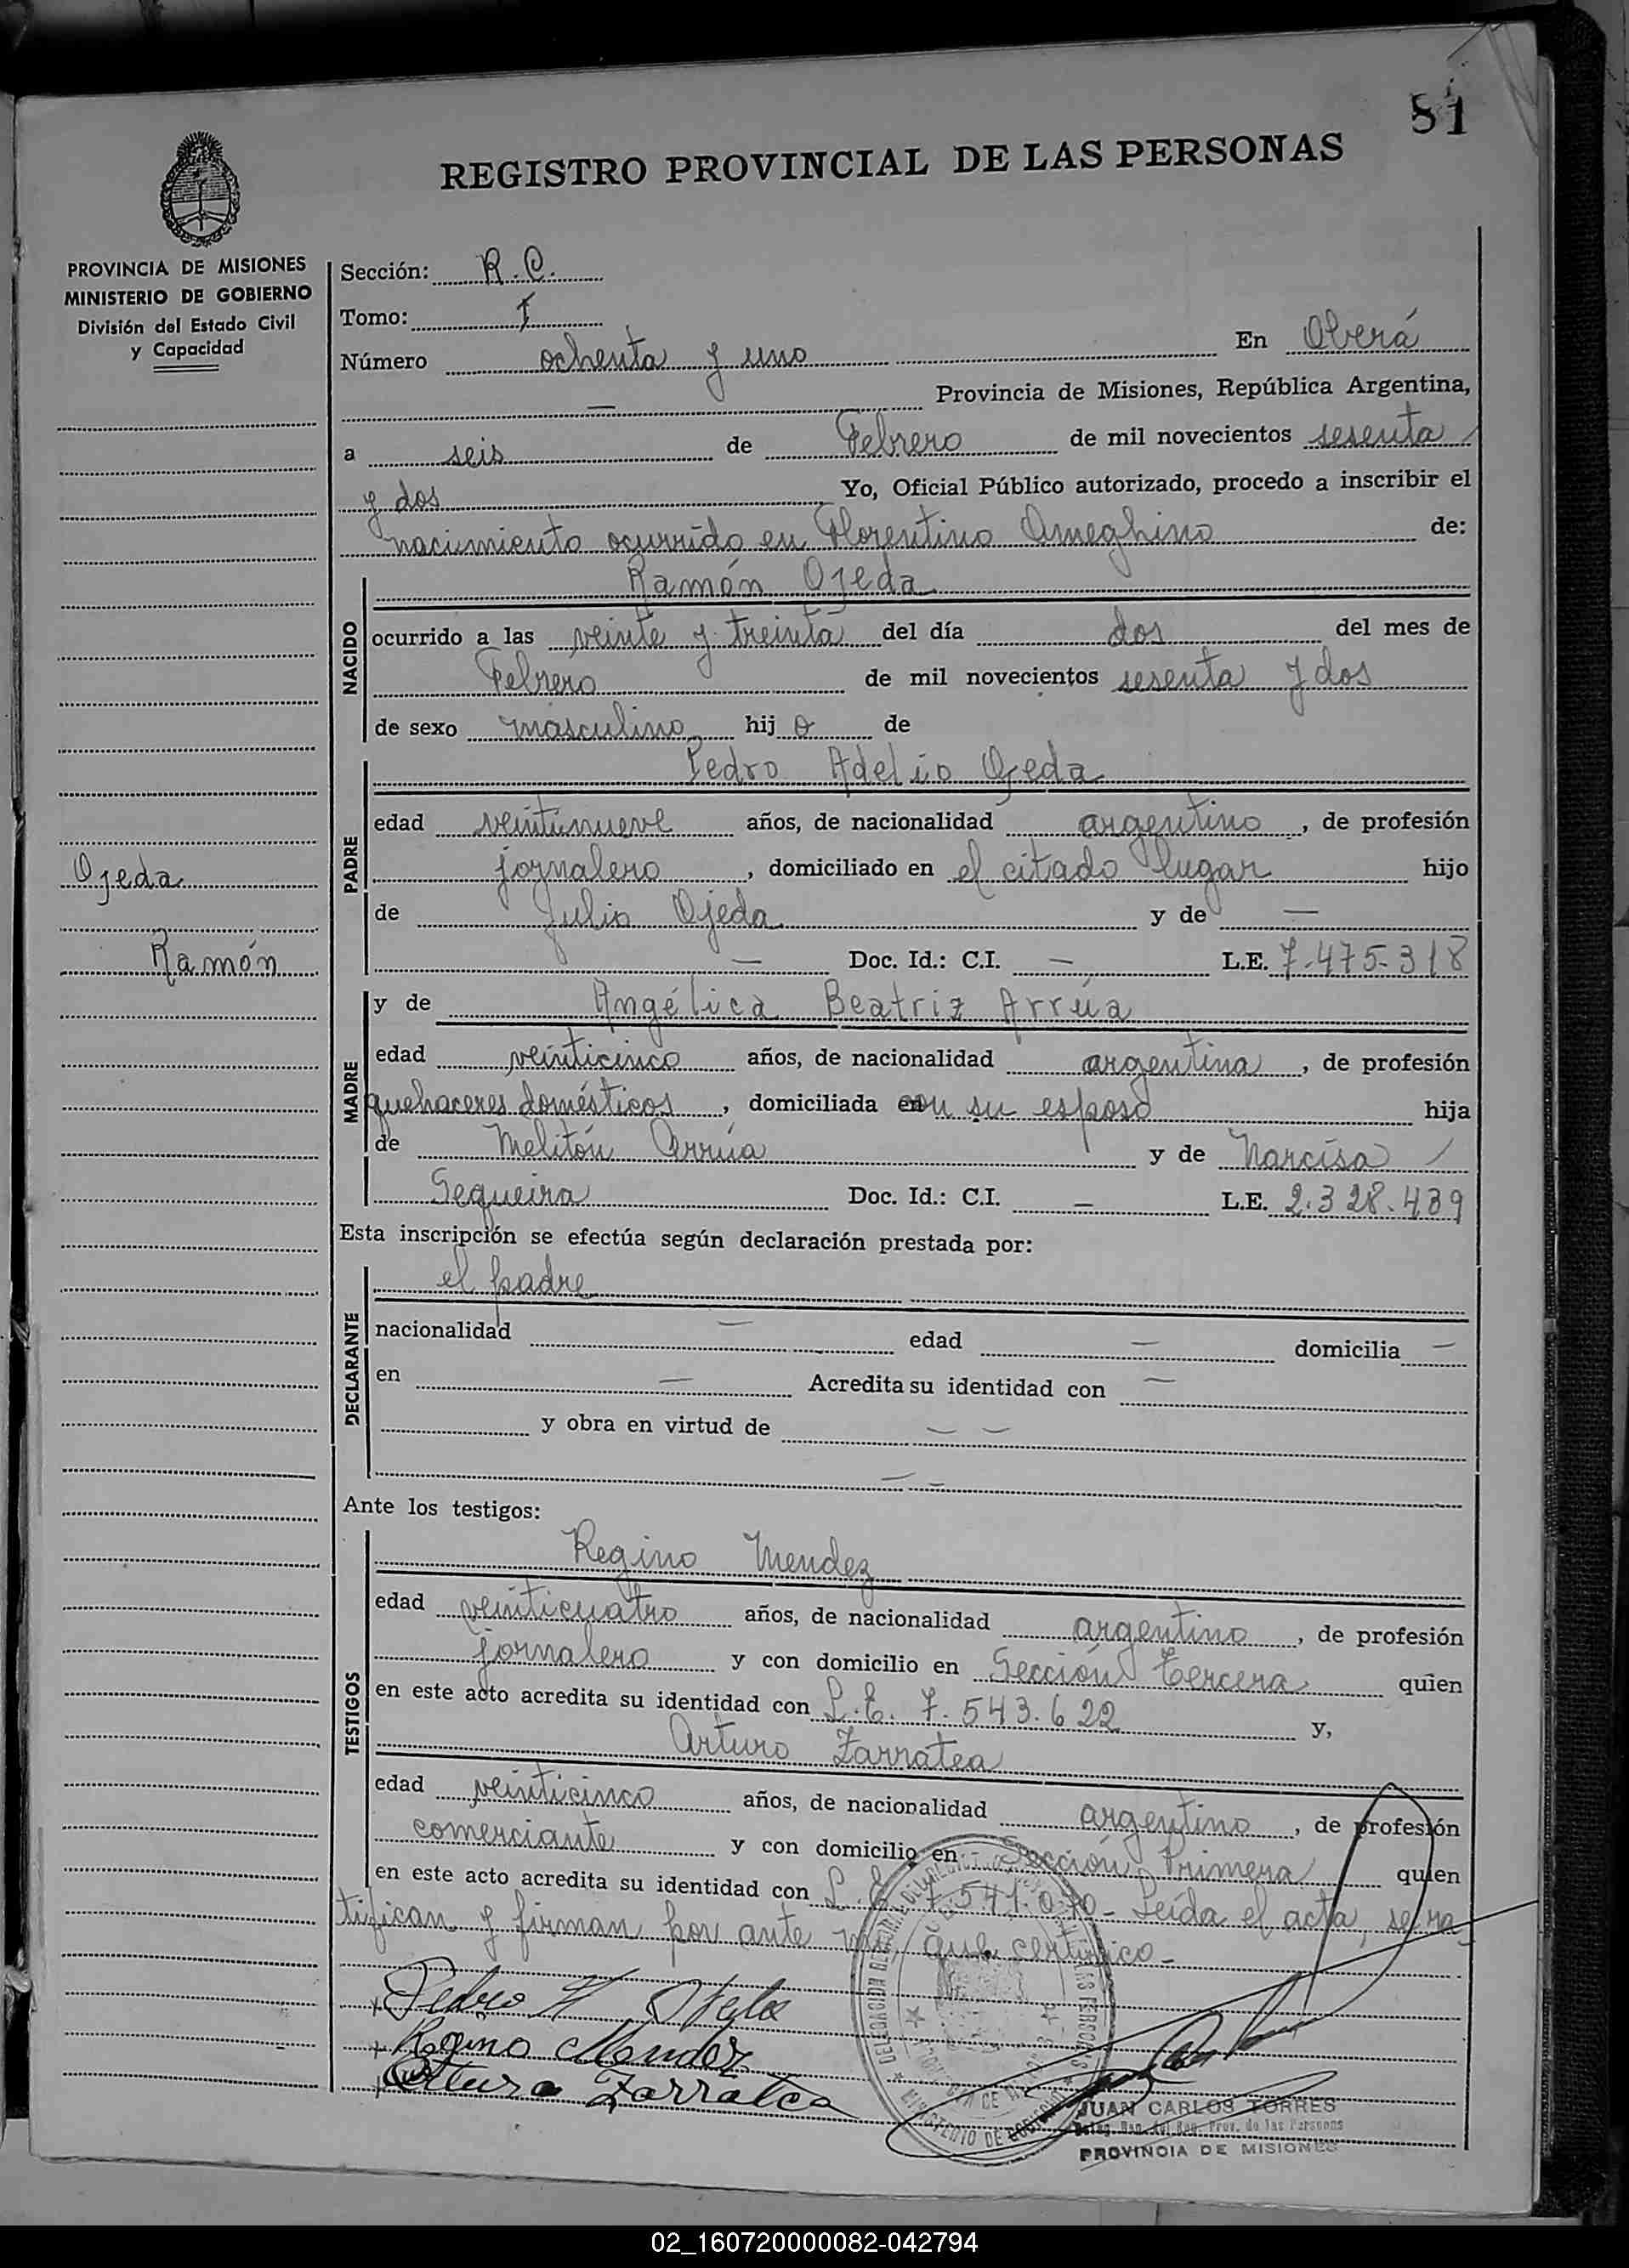 81
REGISTRO PROVINCIAL DE LAS PERSONAS
PROVINCIA DE MISIONES
MINISTERIO DE GOBIERNO
División del Estado Civil
y Capacidad
Sección: R.C.
Tomo: I
Número ochenta y uno En Oberá
— Provincia de Misiones, República Argentina,
a seis de Febrero de mil novecientos sesenta
y dos Yo, Oficial Público autorizado, procedo a inscribir el
nacimiento ocurrido en Florentino Ameghino de:
Ramón Ojeda
NACIDO
ocurrido a las veinte y treinta del día dos del mes de
Febrero de mil novecientos sesenta y dos
de sexo masculino hijo de
Pedro Adelio Ojeda
PADRE
edad veintinueve años, de nacionalidad argentino, de profesión
jornalero, domiciliado en el citado lugar hijo
de Julio Ojeda y de —
— Doc. Id.: C.I. — L.E. 7.475.318
Ojeda
Ramón
y de Angélica Beatriz Arrúa
MADRE
edad veinticinco años, de nacionalidad argentina, de profesión
quehaceres domésticos, domiciliada con su esposo hija
de Melitón Arrúa y de Narcisa
Sequeira Doc. Id.: C.I. — L.E. 2.328.439
Esta inscripción se efectúa según declaración prestada por:
el padre
DECLARANTE
nacionalidad — edad — domicilia —
en — Acredita su identidad con —
y obra en virtud de — —
— —
Ante los testigos:
Regino Mendez
TESTIGOS
edad veinticuatro años, de nacionalidad argentino, de profesión
jornalero y con domicilio en Sección Tercera quien
en este acto acredita su identidad con L.E. 7.543.622 y,
Arturo Zarratea
edad veinticinco años, de nacionalidad argentino, de profesión
comerciante y con domicilio en Sección Primera quien
en este acto acredita su identidad con L.E. 7.541.070- Leída el acta, se ra-
tifican y firman por ante mí, que certifico-
Pedro A Ojeda
Regino Mendez
Arturo Zarratea
JUAN CARLOS TORRES
Prov. de las Personas
PROVINCIA DE MISIONES
02_160720000082-042794